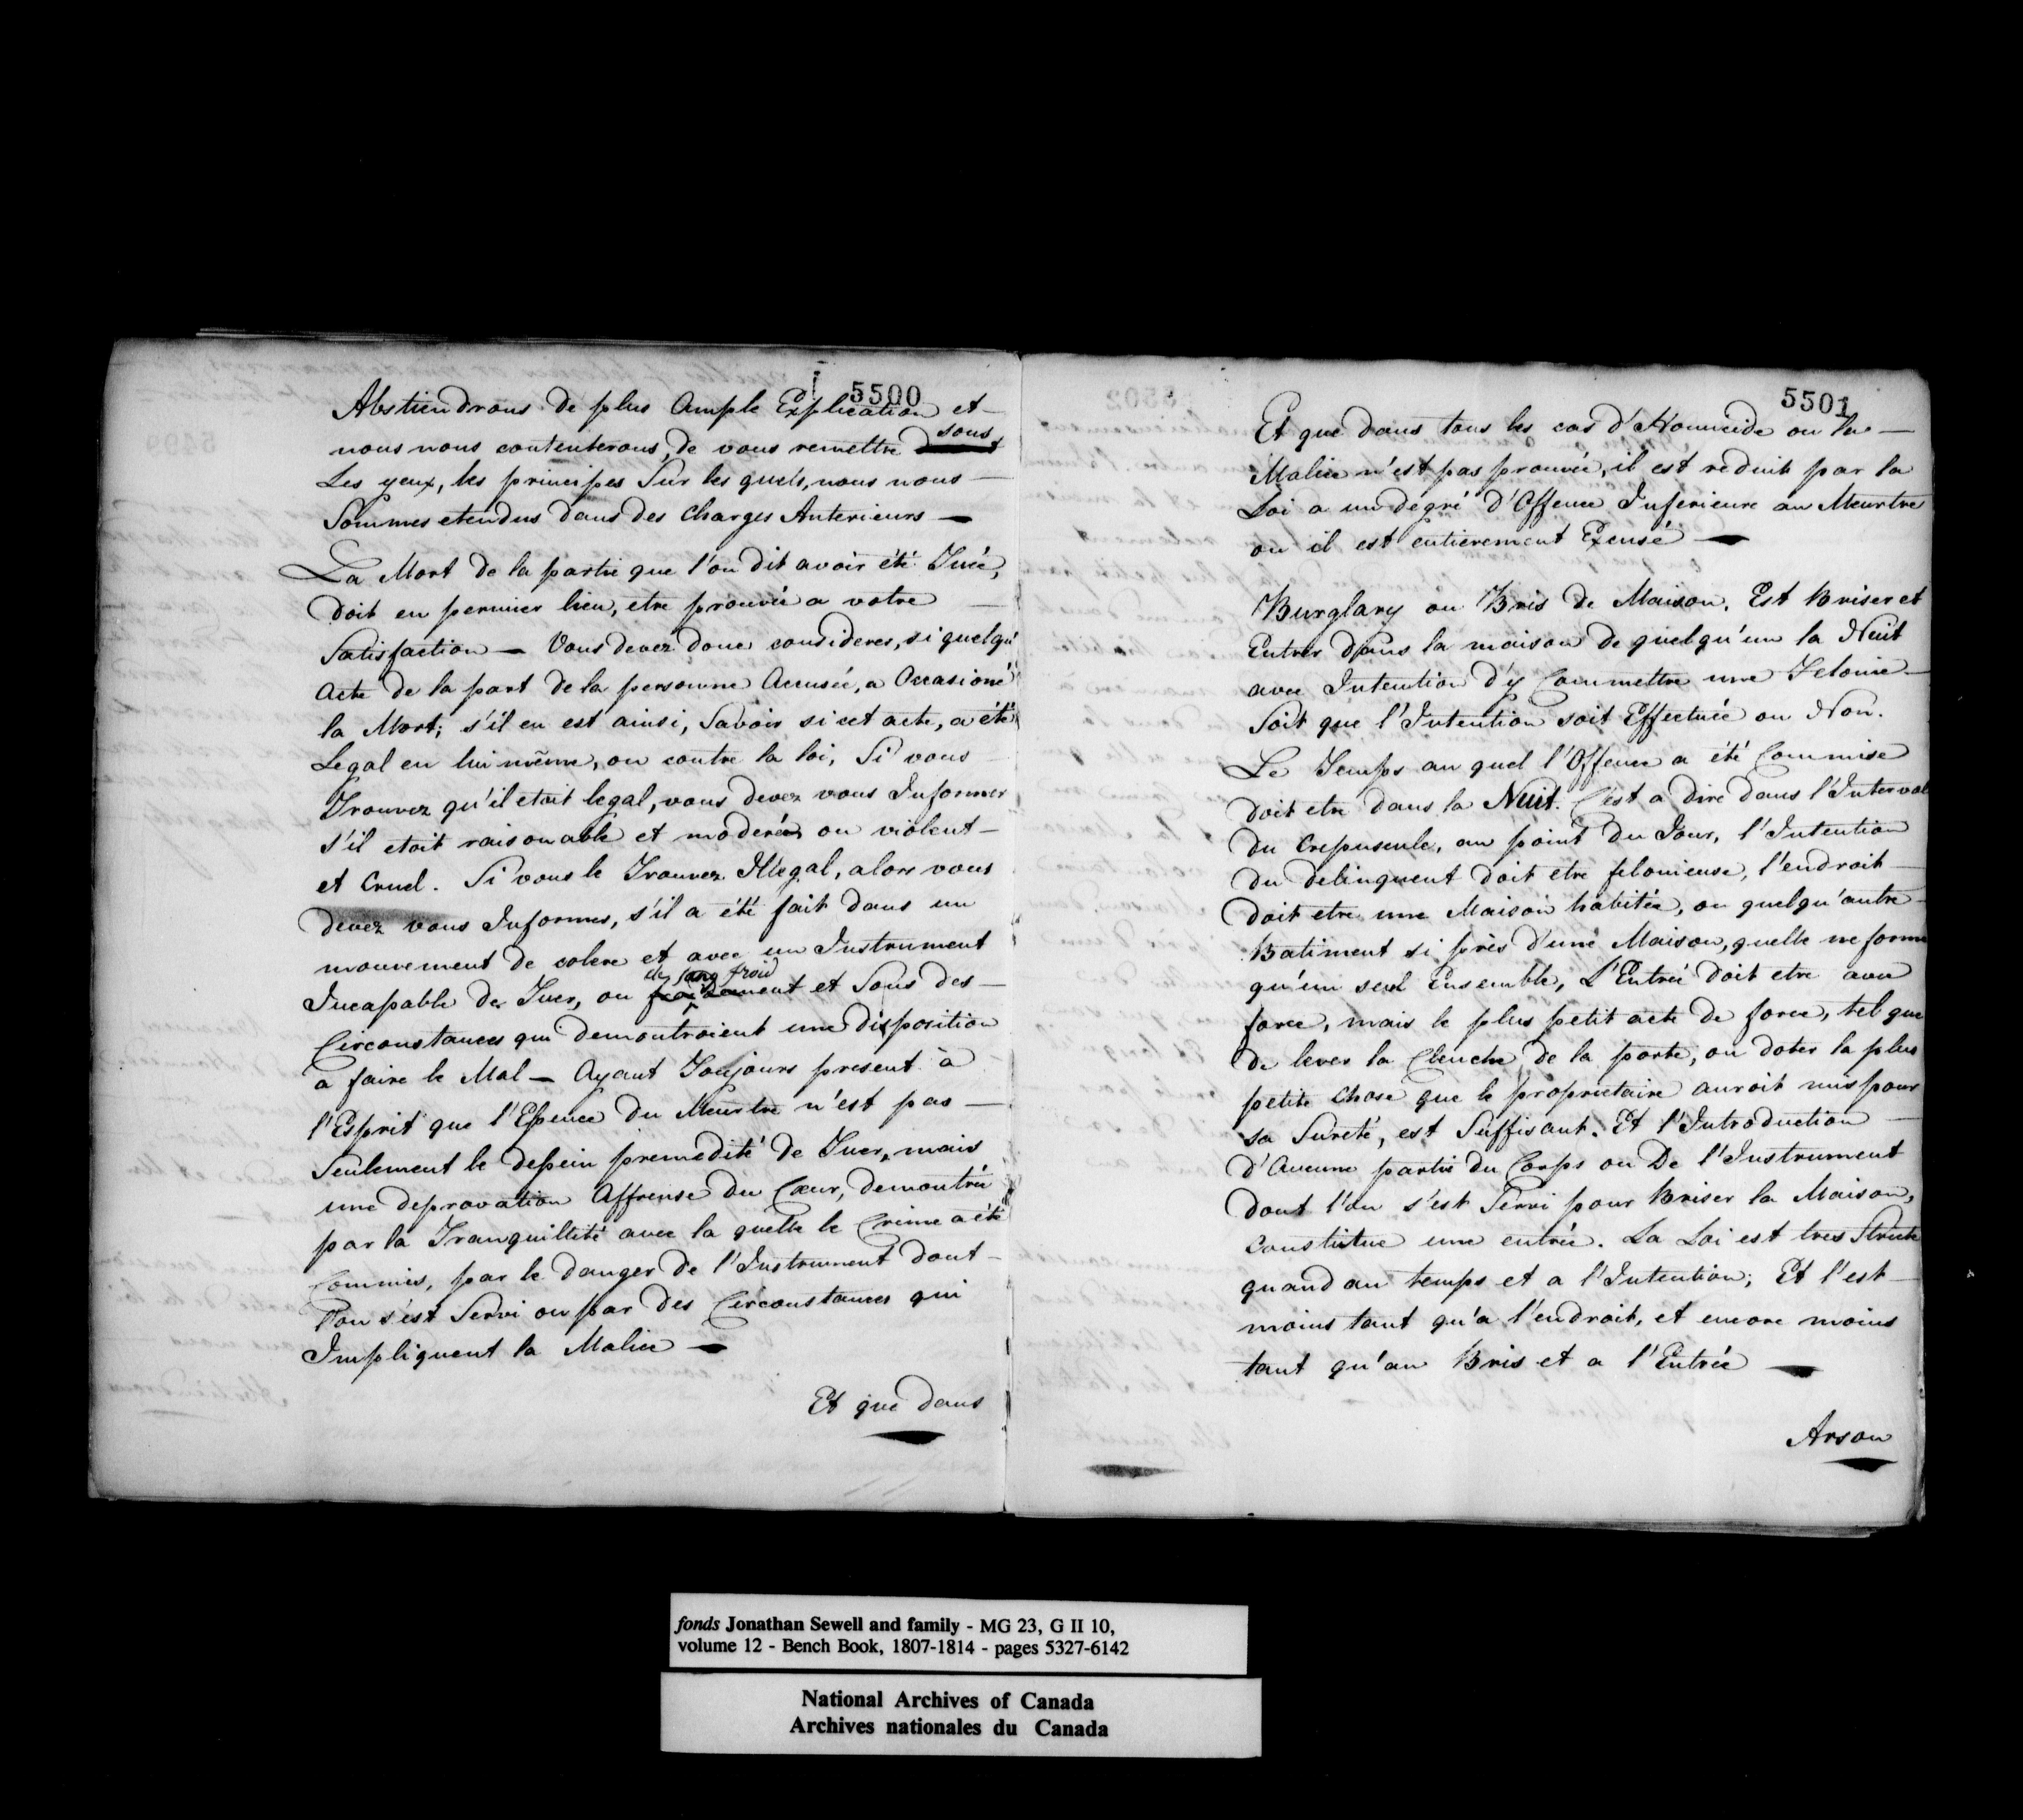 5500
Abstiendrons de plus Ample Explication et —
nous nous contenterons, de vous remettre sous
Les yeux, les principes Sur les quels, nous nous —
Sommes etendus dans des Charges Anterieurs —
La Mort de la partie que l'on dit avoir été Tuée,
doit en permier lieu, etre prouvée a votre —
Satisfaction — Vous devez donc considerer, si quelqu'
Acte de la part de la personne Accusée, a Occasioné
la Mort; s'il en est ainsi, Savoir si cet acte, a été
Legal en lui même, ou contre la loi, Si vous
Trouvez qu'il etoit legal, vous devez vous Informer
s'il etoit raisonable et moderé ou violent —
et Cruel. Si vous le Trouvez Illegal, alors vous
devez vous Informer, s'il a été fait dans un
mouvement de colere et avec un Instrument
Incapable de Tuer, ou de sang froid et Sous des —
Circonstances qui demontroient une disposition
a faire le Mal — Ayant Toujours present à
l'Esprit que l'Essence du Meurtre n'est pas —
Seulement le dessein premedité de Tuer, mais
une depravation Affreuse du Cœur, demontrée
par la Tranquillité avec la quelle le Crime a été
Commis, par le danger de l'Instrument dont —
l'on s'est Servi ou par des Circonstances qui
Impliquent la Malice —
Et que dans
5501
Et que dans tous les cas d'Homicide ou la —
Malice n'est pas prouvée, il est reduit par la
Loi a un dégré d'Offence Inferieure au Meurtre
ou il est entierement Excusé —
Burglary ou Bris de Maison. Est Briser et
Entrer dans la maison de quelqu'un la Nuit
avec Intention d'y Commettre une Felonie —
Soit que l'Intention soit Effectuée ou Non.
Le Temps au quel l'Offence a été Commise
doit etre dans la Nuit. C'est a dire dans l'Interval
du Crepuscule, au point du Jour, l'Intention
du delinquent doit etre felonieuse, l'endroit —
doit etre une Maison habitée, ou quelqu'autre
Batiment si près d'une Maison, quelle ne forme
qu'un seul Ensemble, L'Entrée doit etre avec
force, mais le plus petit acte de force, tel que
de lever la Clenche de la porte, ou doter la plus
petite Chose que le proprietaire auroit mis pour
sa Sureté, est Suffisant. Et l'Introduction —
d'Aucune partie du Corps ou De l'Instrument
dont l'on s'est Servi pour Briser la Maison,
Constitue une entrée. La Loi est tres Stricte
quand au temps et a l'Intention; Et l'est —
moins tant qu'a l'endroit, et encore moins
tant qu'au Bris et a l'Entrée —
Arson
fonds Jonathan Sewell and family - MG 23, G II 10,
volume 12 - Bench Book, 1807-1814 - pages 5327-6142
National Archives of Canada
Archives nationales du Canada